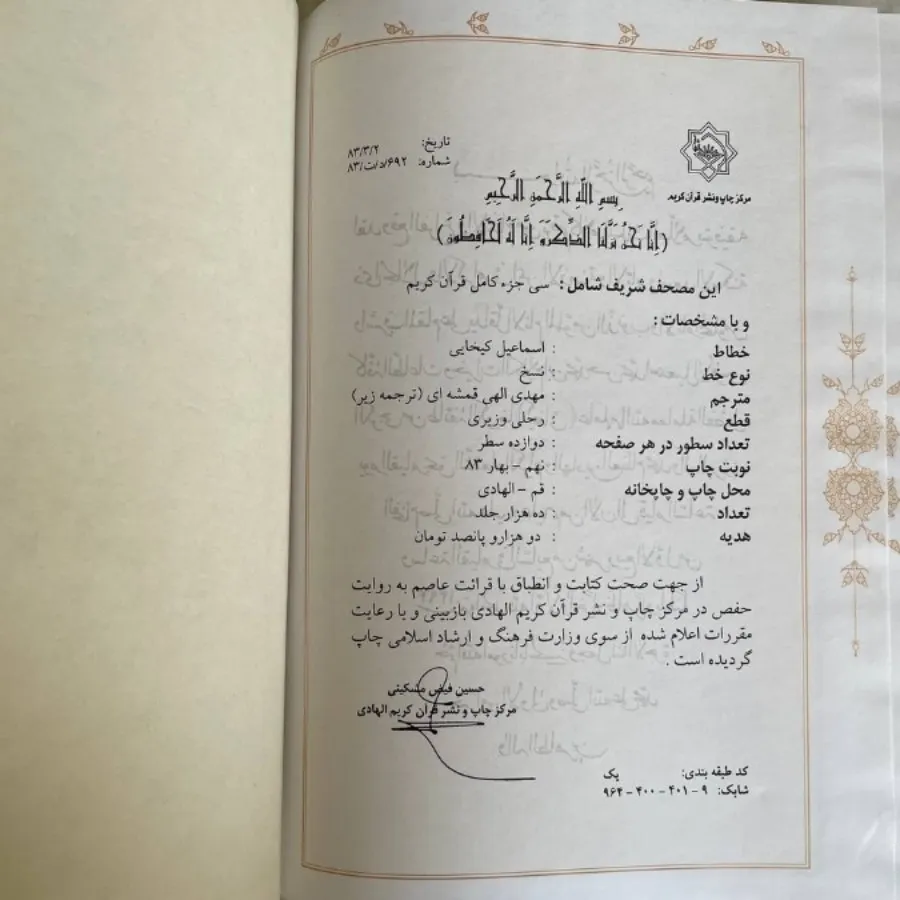 تاریخ: ۸۳/۳/۲
شماره: ۶۹۲/د/ت/۸۳
مرکز چاپ و نشر قرآن کریم
بِسمِ اللّهِ الرَّحْمَنِ الرَّحِیمِ
(اِنّا نَحْنُ نَزَّلْنَا الذِّکْرَوَ اِنّا لَهُ لَحَافِظُونَ)
این مصحف شریف شامل: سی جزء کامل قرآن کریم
و با مشخصات:
خطاط : اسماعیل کیخایی
نوع خط : نسخ
مترجم : مهدی الهی قمشه ای (ترجمه زیر)
قطع : رحلی وزیری
تعداد سطور در هر صفحه : دوازده سطر
نوبت چاپ : نهم - بهار ۸۳
محل چاپ و چاپخانه : قم - الهادی
تعداد : ده هزار جلد
هدیه : دو هزارو پانصد تومان
از جهت صحت کتابت و انطباق با قرائت عاصم به روایت
حفص در مرکز چاپ و نشر قرآن کریم الهادی بازبینی و با رعایت
مقررات اعلام شده از سوی وزارت فرهنگ و ارشاد اسلامی چاپ
گردیده است.
حسین فیض مشکینی
مرکز چاپ و نشر قرآن کریم الهادی
کد طبقه بندی: یک
شابک: ۹ - ۴۰۱ - ۴۰۰ - ۹۶۴